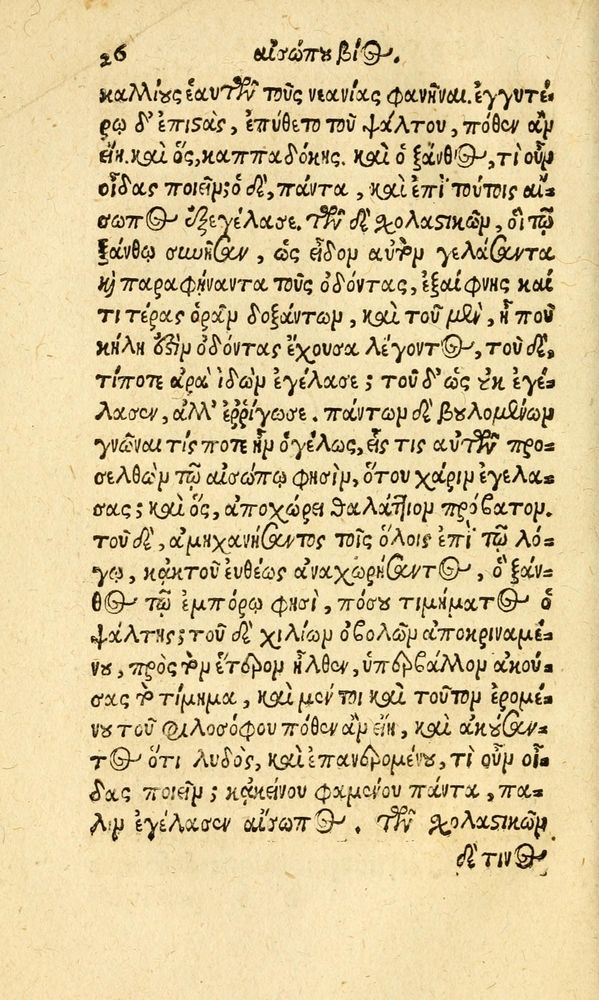 26 αἰσώπου βίος.
καλλίους ἑαυτῶν τοὺς νεανίας φανῆναι. ἐγγυτέ-
ρω δ' ἐπιστὰς, ἐπύθετο τοῦ ψάλτου, πόθεν ἂν
εἴη. καὶ ὃς, καππαδόκης. καὶ ὁ ξάνθος, τί οὖν
οἶδας ποιεῖν; ὁ δὲ, πάντα, καὶ ἐπὶ τούτοις αἴ-
σωπος ἐξεγέλασε. τῶν δὲ χολαστικῶν, οἳ τῷ
ξάνθῳ συνῆσαν, ὡς εἶδον αὐτὸν γελάσαντα
καὶ παραφήναντα τοὺς ὀδόντας, ἐξαίφνης καί
τι τέρας ὁρᾶν δοξάντων, καὶ τοῦ μὲν, ἦ που
κήλη ἐστὶν ὀδόντας ἔχουσα λέγοντος, τοῦ δὲ,
τί ποτε ἄρα ἰδὼν ἐγέλασε; τοῦ δ' ὡς οὐκ ἐγέ-
λασεν, ἀλλ' ἐῤῥίγωσε. πάντων δὲ βουλομένων
γνῶναι τίς ποτε ἦν ὁ γέλως, εἷς τις αὐτῶν προ-
σελθὼν τῷ αἰσώπῳ φησὶν, ὅτου χάριν ἐγέλα-
σας; καὶ ὃς, ἀποχώρει θαλάττιον πρόβατον.
τοῦ δὲ, ἀμηχανήσαντος τοῖς ὅλοις ἐπὶ τῷ λό-
γῳ, κἀκ τοῦ εὐθέως ἀναχωρήσαντος, ὁ ξάν-
θος τῷ ἐμπόρῳ φησὶ, πόσου τιμήματος ὁ
ψάλτης; τοῦ δὲ χιλίων ὀβολῶν ἀποκριναμέ-
νου, πρὸς τὸν ἕτερον ἦλθεν, ὑπερβάλλον ἀκού-
σας τὸ τίμημα, καὶ μέν τοι καὶ τοῦτον ἐρομέ-
νου τοῦ φιλοσόφου πόθεν ἂν εἴη, καὶ ἀκούσαν-
τος ὅτι λυδὸς, καὶ ἐπανερομένου, τί οὖν οἶ-
δας ποιεῖν; κἀκείνου φαμένου πάντα, πά-
λιν ἐγέλασεν αἴσωπος. τῶν χολαστικῶν
δὲ τινος